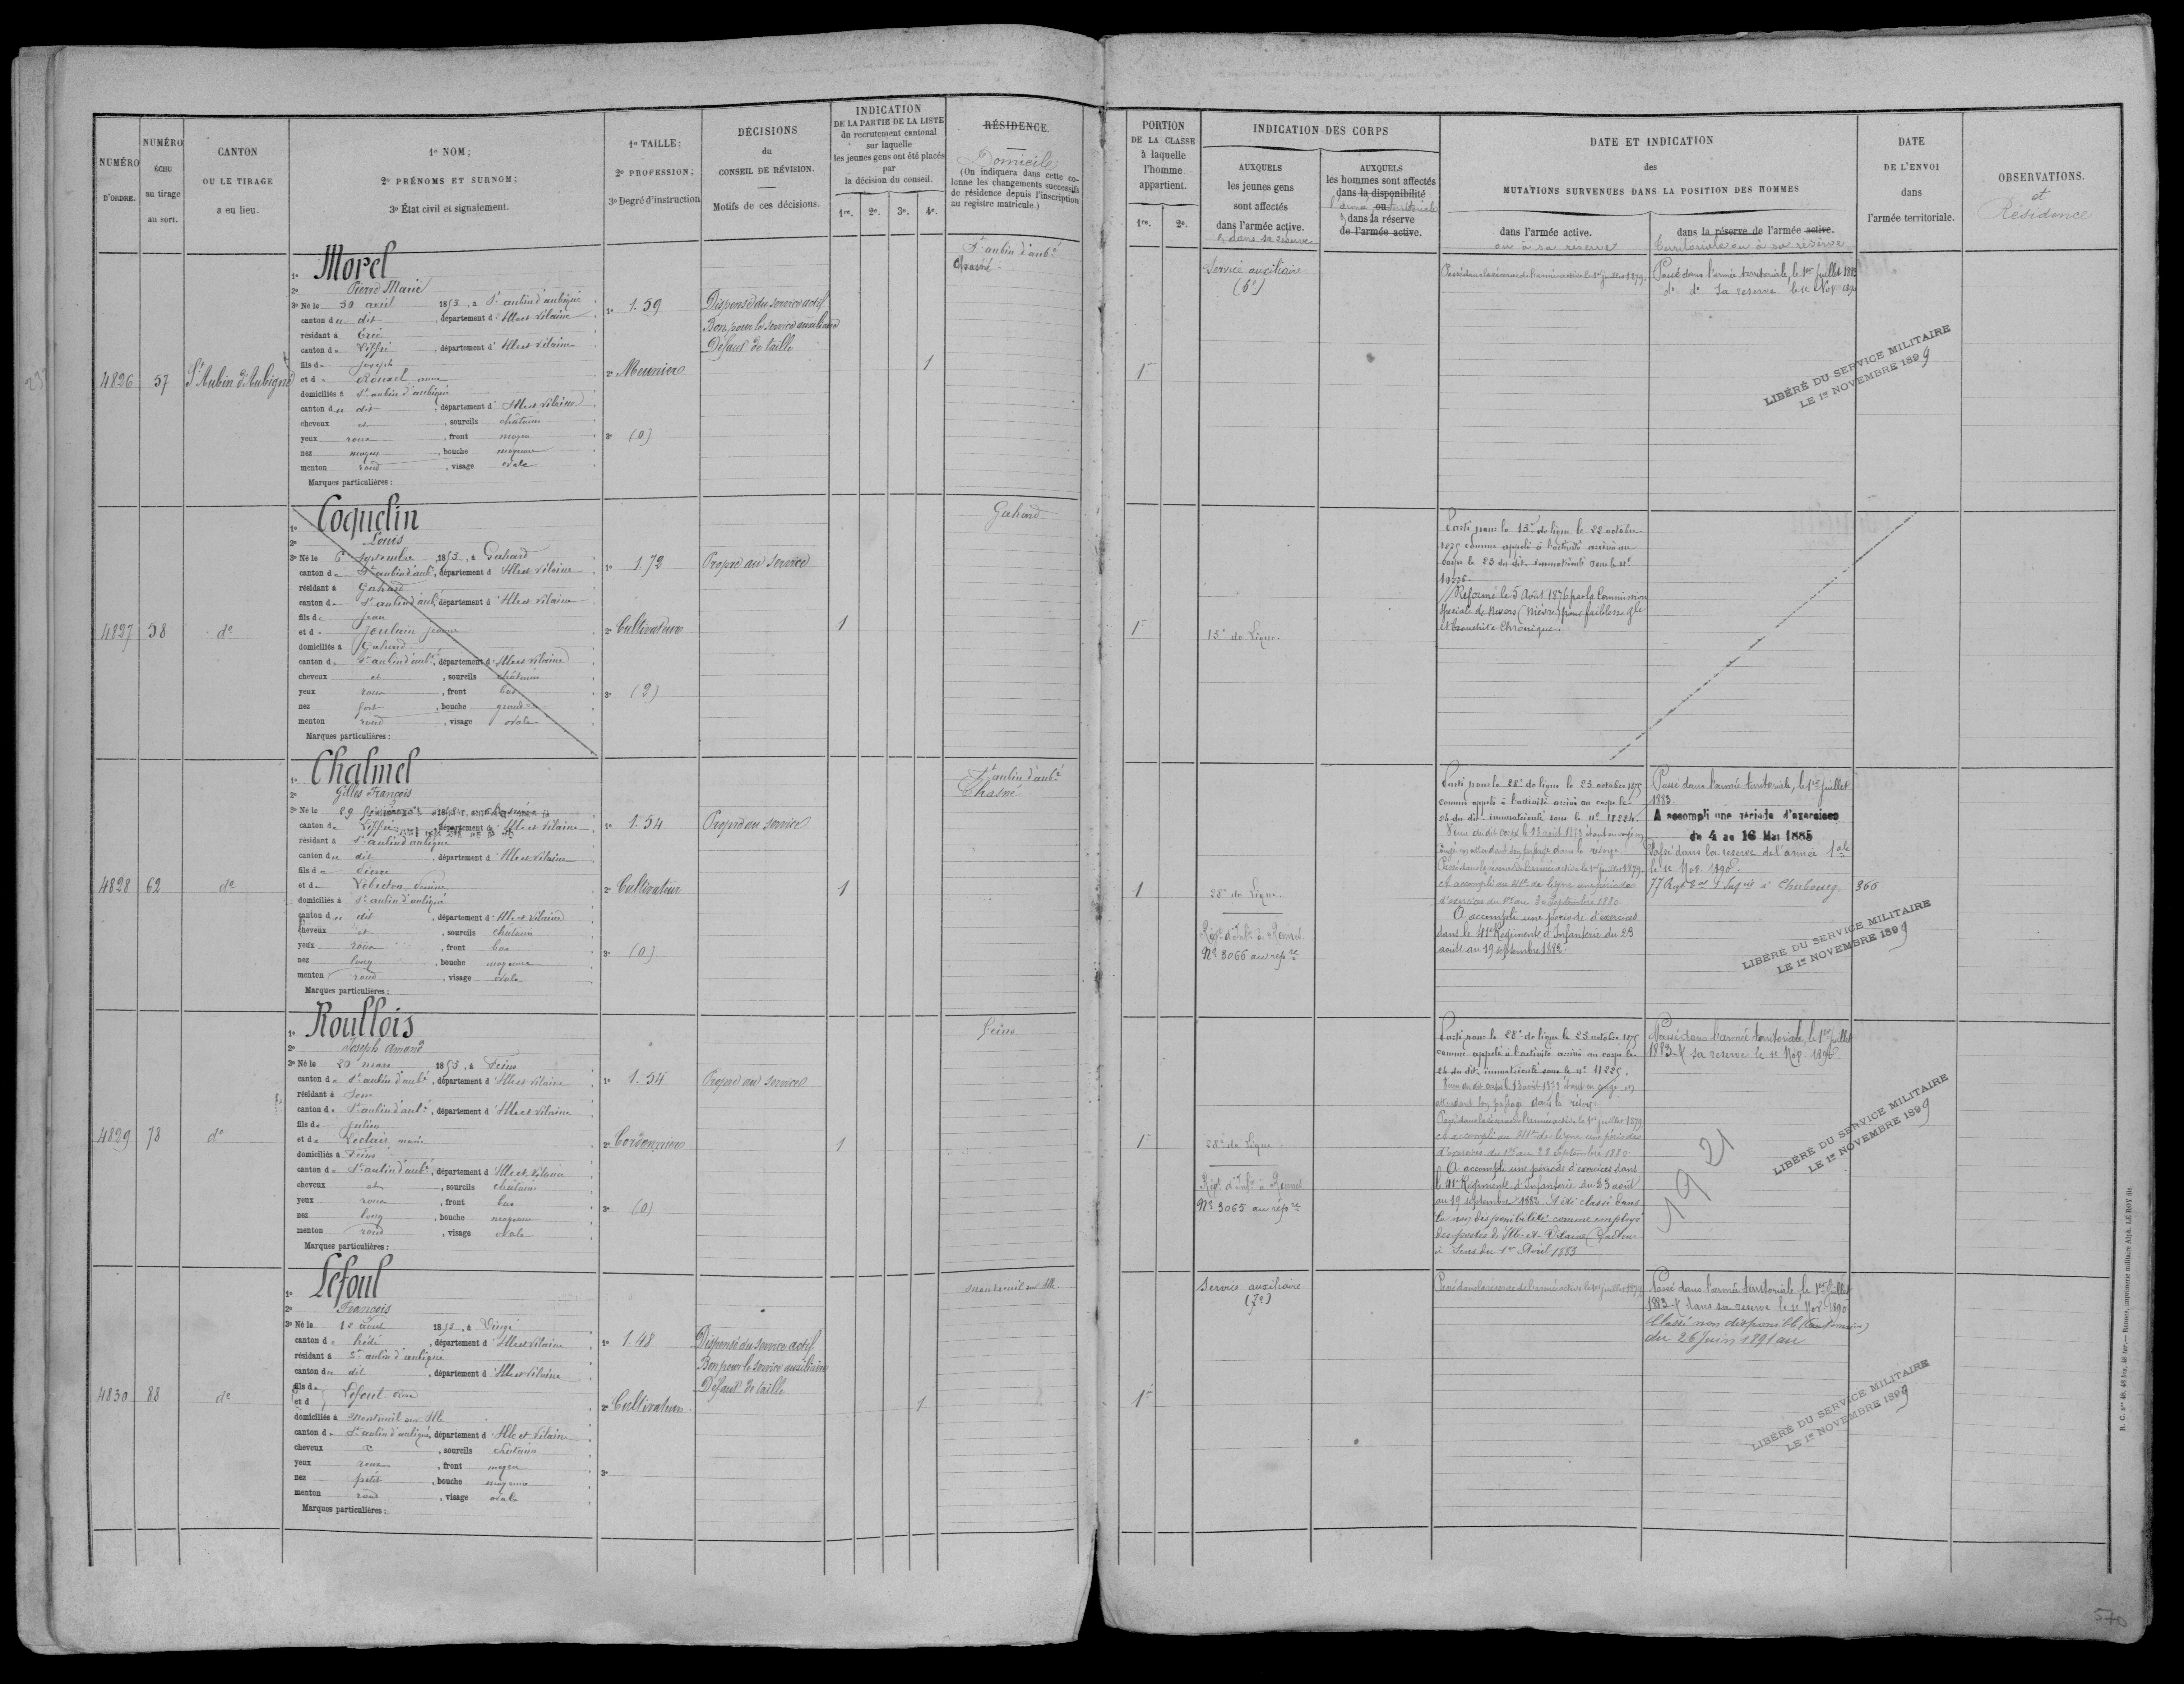 NUMÉRO
D'ORDRE.
NUMÉRO
ÉCHU
au tirage
au sort.
CANTON
OU LE TIRAGE
a eu lieu.
1º NOM;
2º PRÉNOMS ET SURNOM;
3º État civil et signalement.
1º TAILLE;
2º PROFESSION;
3º Degré d'instruction
DÉCISIONS
du
CONSEIL DE RÉVISION.
Motifs de ces décisions.
INDICATION
DE LA PARTIE DE LA LISTE
du recrutement cantonal
sur laquelle
les jeunes gens ont été placés
par
la décision du conseil.
1re. 2e. 3e. 4e.
RÉSIDENCE.
Domicile
(On indiquera dans cette co-
lonne les changements successifs
de résidence depuis l'inscription
au registre matricule.)
PORTION
DE LA CLASSE
à laquelle
l'homme
appartient.
1re. 2e.
INDICATION DES CORPS
AUXQUELS
les jeunes gens
sont affectés
dans l'armée active.
& dans sa réserve
AUXQUELS
les hommes sont affectés
dans la disponibilité
l'armée ou territoriale
& dans la réserve
de l'armée active.
DATE ET INDICATION
des
MUTATIONS SURVENUES DANS LA POSITION DES HOMMES
dans l'armée active.
ou à sa réserve
dans la réserve de l'armée active.
territoriale ou à sa réserve
DATE
DE L'ENVOI
dans
l'armée territoriale.
OBSERVATIONS.
et
Résidence
4826 57 St Aubin d'Aubigné
1º Morel
2º Pierre Marie
3º Né le 30 avril 1853, à St aubin d'aubigné
canton du dit, département d'Ille et Vilaine
résidant à
canton de Liffré, département d'Ille et Vilaine
fils de Joseph
et de Rouxel anne
domiciliés à St aubin d'aubigné
canton du dit, département d'Ille et Vilaine
cheveux et, sourcils châtains
yeux roux, front moyen
nez moyen, bouche moyenne
menton rond, visage ovale
Marques particulières:
1º 1.59
2º Meunier
3º (0)
Dispensé du service actif
Bon pour le service auxiliaire
Défaut de taille
1
St aubin d'aubé
Chasné.
1re
Service auxiliaire
(6e)
Passé dans la réserve de l'armée active le 1er juillet 1879.
Passé dans l'armée territoriale, le 1er juillet 1883
do do sa reserve le 1e Nov. 1890
LIBÉRÉ DU SERVICE MILITAIRE
LE 1er NOVEMBRE 1899
4827 58 do
1º Coquelin
2º Louis
3º Né le 6 septembre 1853, à Gahard
canton de St aubin d'aubé, département d'Ille et Vilaine
résidant à Gahard
canton de St aubin d'aubé, département d'Ille et Vilaine
fils de Jean
et de Joulain Jeanne
domiciliés à Gahard
canton de St aubin d'aubé, département d'Ille et Vilaine
cheveux et, sourcils châtains
yeux roux, front bas
nez fort, bouche grande
menton rond, visage ovale
Marques particulières:
1º 1.72
2º Cultivateur
3º (2)
Propre au service
1
Gahard
1re
13e de Ligne.
Parti pour le 13e de ligne le 22 octobre
1875 comme appelé à l'activité arrivé au
corps le 23 du dit. immatriculé sous le no
Réformé le 5 Août 1876 par la Commission
spéciale de Nevers (Nièvre) pour faiblesse gle
et bronchite Chronique.
4828 62 do
1º Chalmel
2º Gilles François
3º Né le 29
canton de Liffré, département d'Ille et Vilaine
résidant à St aubin d'aubigné
canton du dit, département d'Ille et Vilaine
fils de Pierre
et de Lebreton
domiciliés à St aubin d'aubigné
canton du dit, département d'Ille et Vilaine
cheveux et, sourcils châtains
yeux roux, front bas
nez long, bouche moyenne
menton rond, visage ovale
Marques particulières:
1º 1.54
2º Cultivateur
3º (0)
Propre au service
1
St aubin d'aubé
Chasné
1
28e de Ligne.
Régt d'Infie à Rennes
No 3066 au répre
Parti pour le 28e de ligne le 23 octobre 1875
comme appelé à l'activité arrivé au corps le
24 du dit immatriculé sous le no 11224.
Venu du dit corps le 13 août 1879 étant en
congé en attendant son passage dans la réserve
Passé dans la réserve de l'armée active le 1er juillet 1879.
A accompli au 41e de ligne une période
d'exercices du 1er au 30 septembre 1880
A accompli une période d'exercices
dans le 41e Régiment d'Infanterie du 23
août au 19 septembre 1882.
Passé dans l'armée territoriale, le 1er juillet
1883.
A accompli une période d'exercices
du 4 au 16 Mai 1885
Passé dans la reserve de l'armée Tale
le 1e Nov. 1890.
77 à Cherbourg. 366
LIBÉRÉ DU SERVICE MILITAIRE
LE 1er NOVEMBRE 1899
4829 78 do
1º Roullois
2º Joseph Amand
3º Né le 20 mars 1853, à Feins
canton de St aubin d'aubé, département d'Ille et Vilaine
résidant à
canton de St aubin d'aubé, département d'Ille et Vilaine
fils de Julien
et de Leclair marie
domiciliés à Feins
canton de St aubin d'aubé, département d'Ille et Vilaine
cheveux et, sourcils châtains
yeux roux, front bas
nez long, bouche moyenne
menton rond, visage ovale
Marques particulières:
1º 1.54
2º Cordonnier
3º (0)
Propre au service
1
Feins
1re
28e de Ligne
Régt d'Infie à Rennes
No 3065 au répre
Parti pour le 28e de ligne le 23 octobre 1875
comme appelé à l'activité arrivé au corps le
24 du dit. immatriculé sous le no 11225.
Venu du dit corps le 13 août 1879 étant en congé en
attendant son passage dans la réserve
Passé dans la réserve de l'armée active le 1er juillet 1879
A accompli au 41e de ligne une période
d'exercices du 1er au 28 septembre 1880
A accompli une période d'exercices dans
le 41e Régiment d'Infanterie du 23 août
au 19 septembre 1882. A été classé dans
la non disponibilité comme employé
des postes de l'Ille-et-Vilaine (facteur
à Sens du 1er Avril 1883
Passé dans l'armée territoriale, le 1er juillet
1883 & sa reserve le 1e Nov. 1890
19 21
LIBÉRÉ DU SERVICE MILITAIRE
LE 1er NOVEMBRE 1899
4830 88 do
1º Lefoul
2º François
3º Né le 12 août 1853, à Vingé
canton de hédé, département d'Ille et Vilaine
résidant à St aubin d'aubigné
canton du dit, département d'Ille et Vilaine
fils de Lefoul
et d
domiciliés à Montreuil sur Ille
canton de St aubin d'aubigné, département d'Ille et Vilaine
cheveux et, sourcils châtains
yeux roux, front moyen
nez petit, bouche moyenne
menton rond, visage ovale
Marques particulières:
1º 1.48
2º Cultivateur
3º
Dispensé du service actif
Bon pour le service auxiliaire
Défaut de taille
1
Montreuil sur Ille
1re
Service auxiliaire
(7e)
Passé dans la réserve de l'armée active le 1er juillet 1879
Passé dans l'armée territoriale, le 1er Juillet
1883 & dans sa reserve le 1e Nov. 1890
Classé non disponible
du 26 Juin 1891 au
LIBÉRÉ DU SERVICE MILITAIRE
LE 1er NOVEMBRE 1899
570